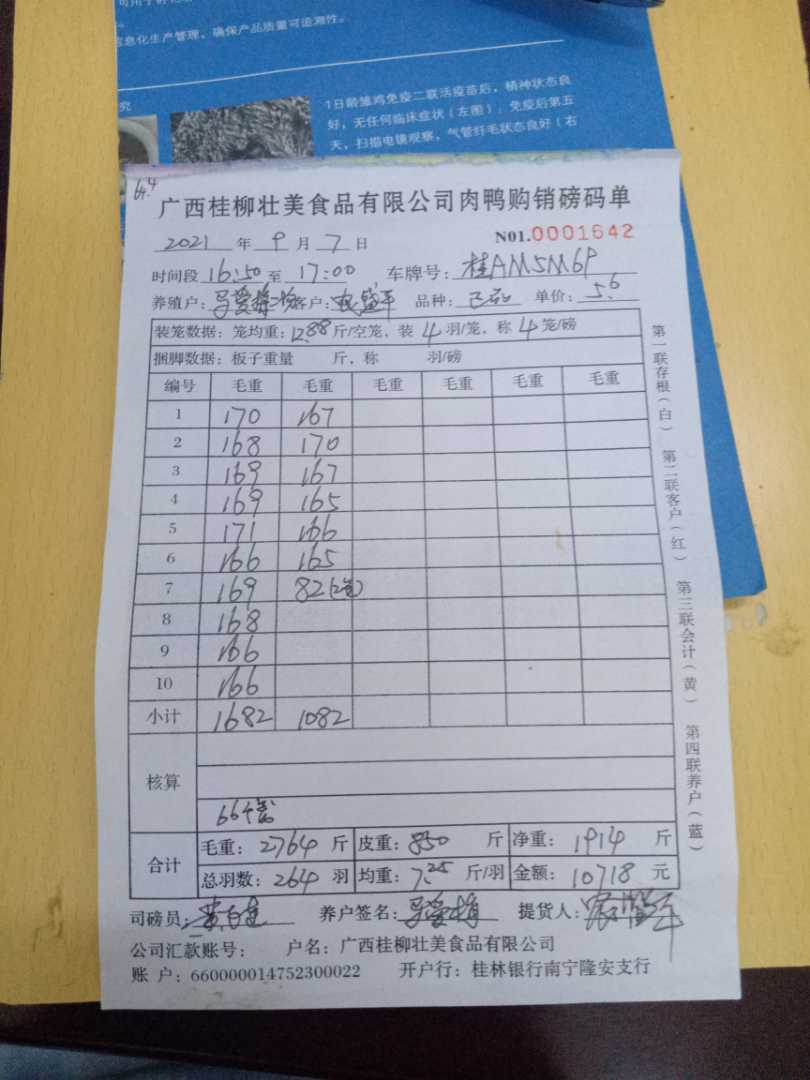 息化生产管理，确保产品质量可追溯性。
究
1日龄雏鸡免疫二联活疫苗后，精神状态良
好，无任何临床症状（左图）；免疫后第五
天，扫描电镜观察，气管纤毛状态良好（右
64.4
广西桂柳壮美食品有限公司肉鸭购销磅码单
2021 年 9 月 7 日 N01.0001642
时间段 16:50 至 17:00 车牌号：桂AM5M6P
养殖户： 客户： 品种： 单价：5.6
装笼数据：笼均重：12.88斤/空笼，装 4 羽/笼，称 4 笼/磅
捆脚数据：板子重量 斤，称 羽/磅
编号 毛重 毛重 毛重 毛重 毛重 毛重
1 170 167
2 168 170
3 169 167
4 169 165
5 171 166
6 166 165
7 169 82(2笼)
8 168
9 166
10 166
小计 1682 1082
核算
66个笼
合计 毛重：2764 斤 皮重：850 斤 净重：1914 斤
总羽数：264 羽 均重：7.25 斤/羽 金额：10718 元
司磅员： 养户签名： 提货人：
公司汇款账号： 户名：广西桂柳壮美食品有限公司
账 户：660000014752300022 开户行：桂林银行南宁隆安支行
第一联存根（白） 第二联客户（红） 第三联会计（黄） 第四联养户（蓝）